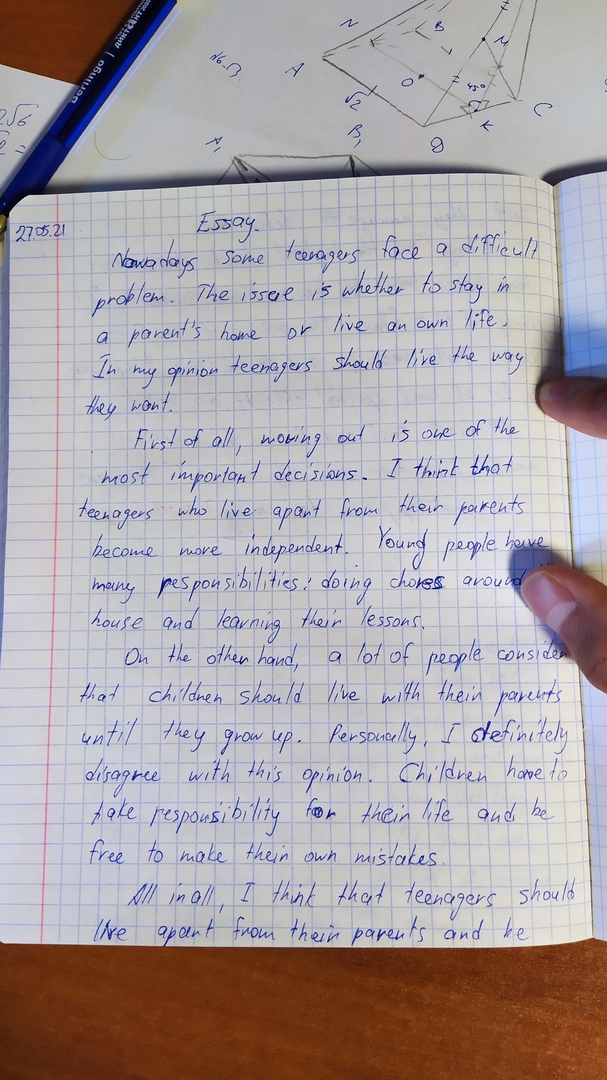 Berlingo
N
B
M
A
O
45°
C
√2
K
2√6
A₁
B₁
27.05.21
Essay.
Nowadays some teenagers face a difficult
problem. The issue is whether to stay in
a parent's home or live an own life.
In my opinion teenagers should live the way
they want.
First of all, moving out is one of the
most important decisions. I think that
teenagers who live apart from their parents
become more independent. Young people have
many responsibilities: doing chores around
house and learning their lessons.
On the other hand, a lot of people consider
that children should live with their parents
until they grow up. Personally, I definitely
disagree with this opinion. Children have to
take responsibility for their life and be
free to make their own mistakes.
All in all, I think that teenagers should
live apart from their parents and be